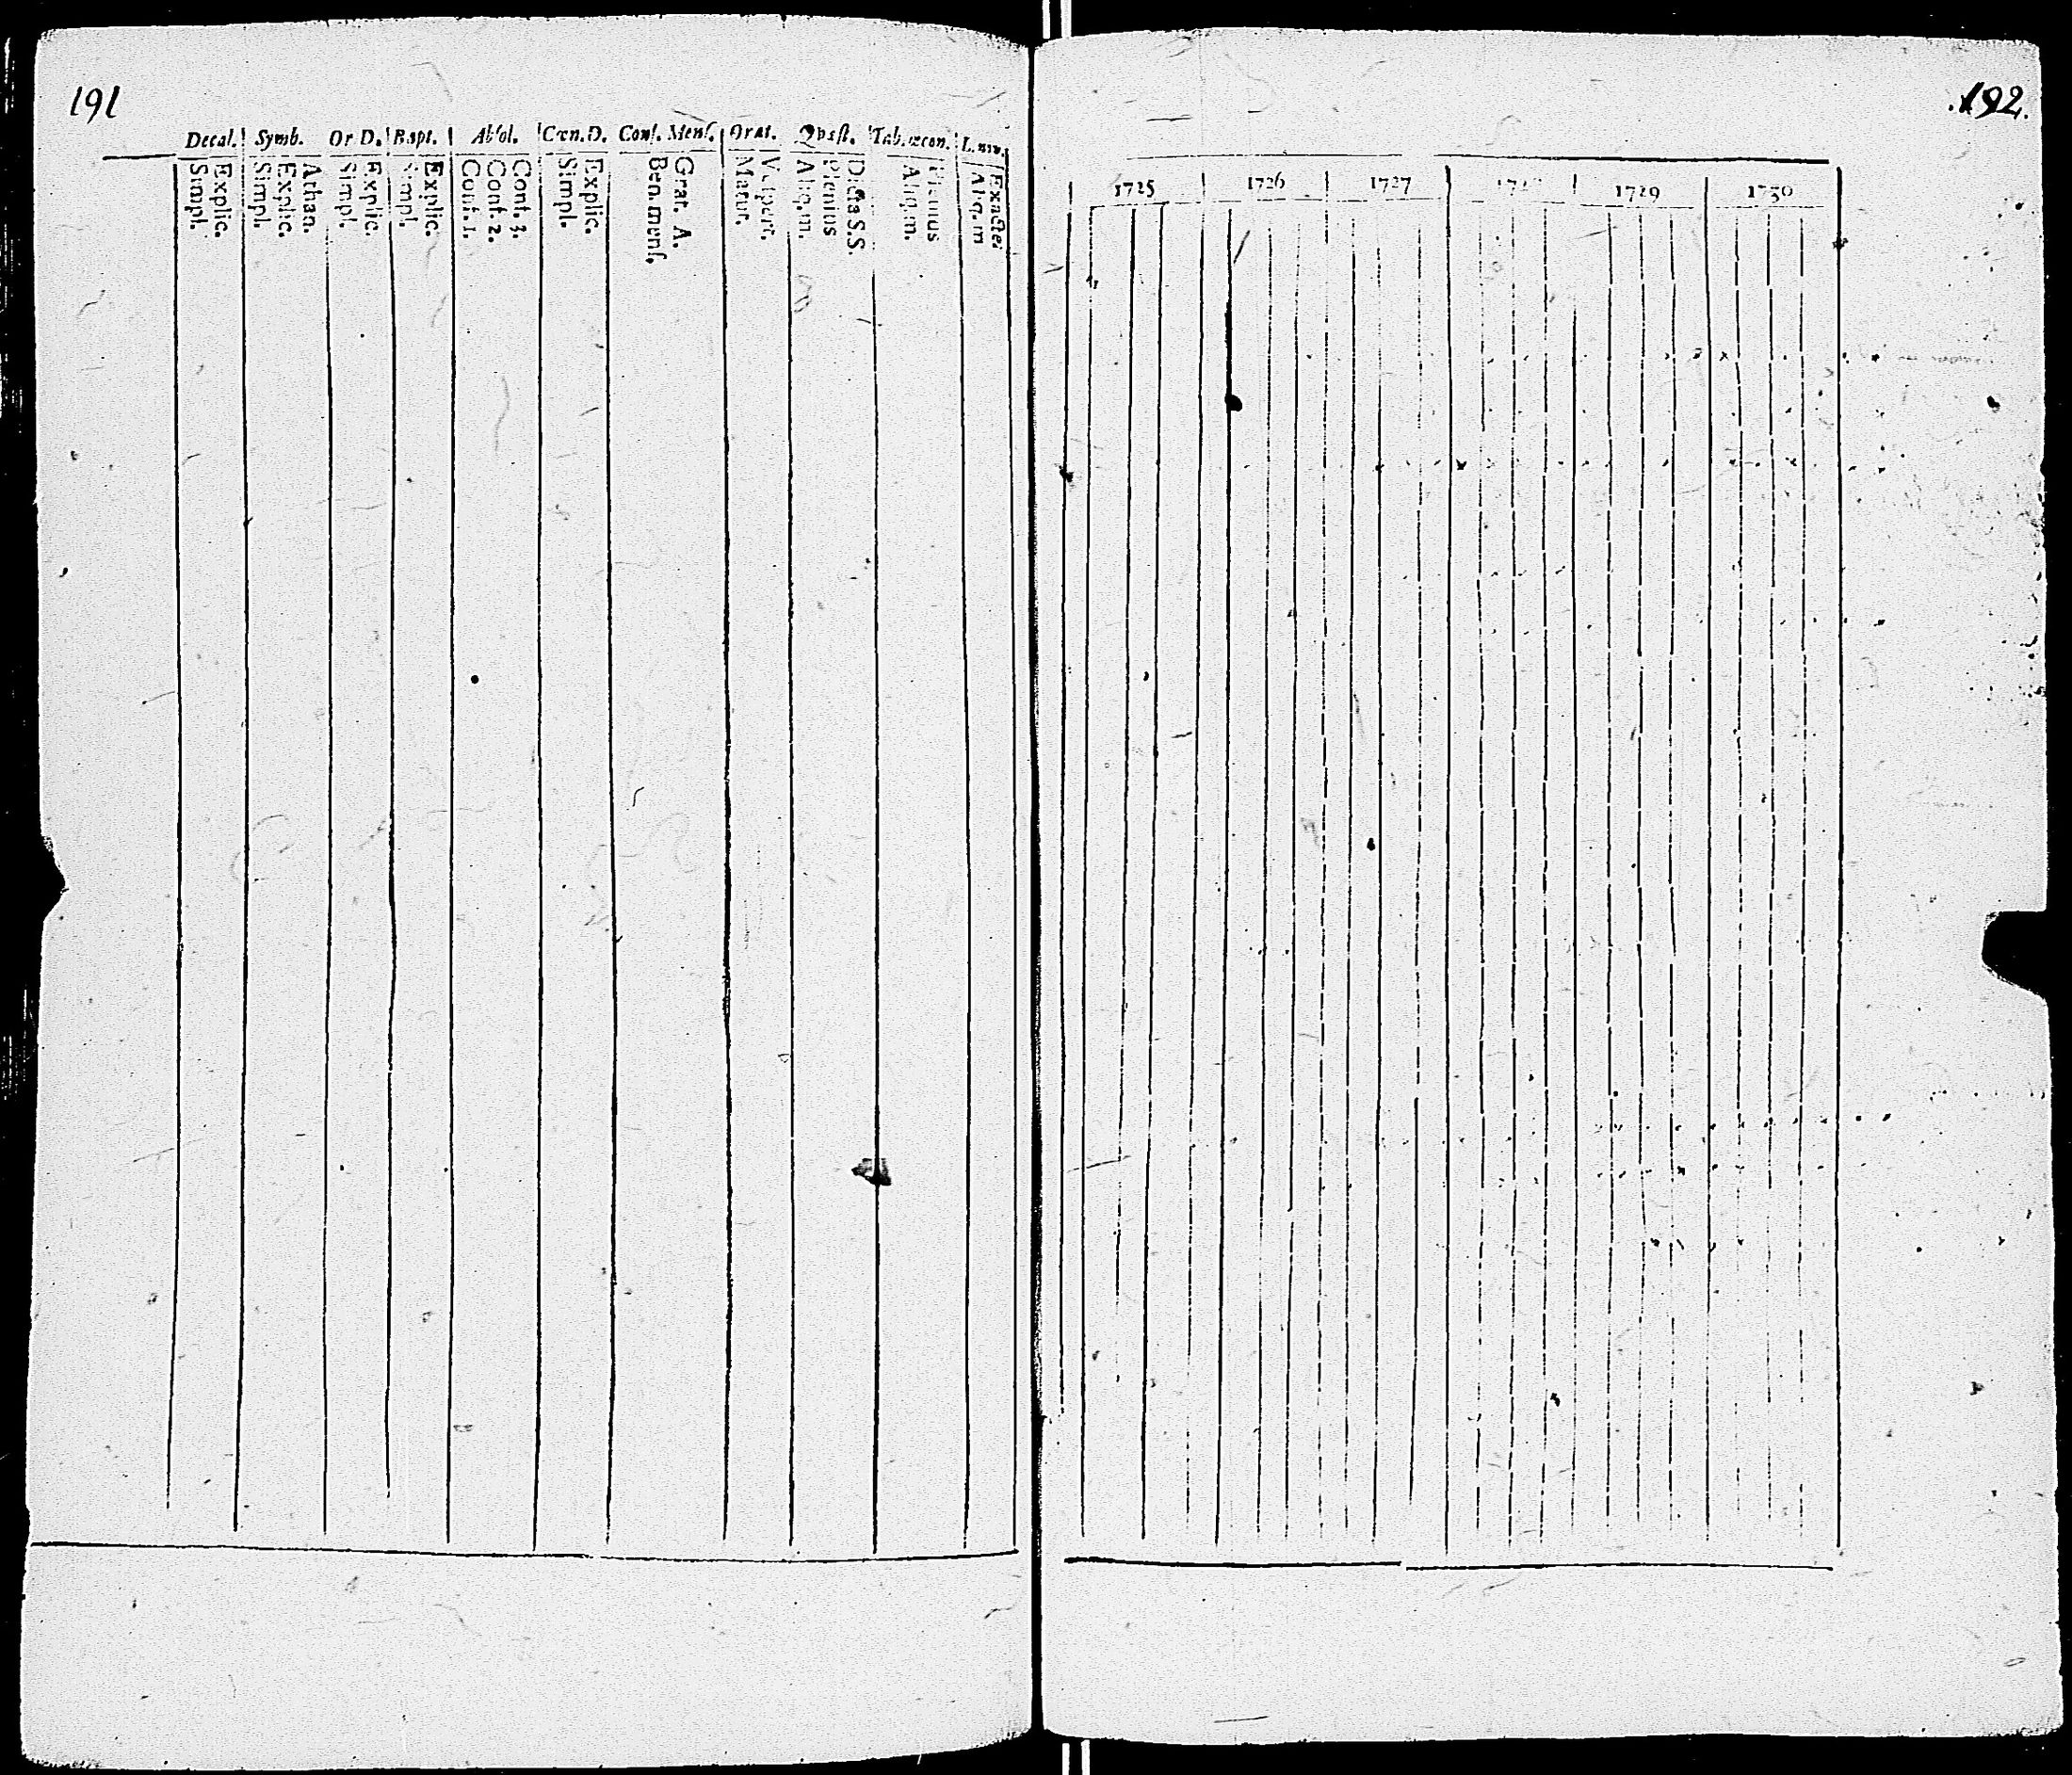 191
Decal. Symb. Or D. Bapt. Absol. Cœn. D. Conf. Mens. Orat. Qvæst. Tab. œcon.
Explic.
Simpl.
Athan.
Explic.
Simpl.
Explic.
Simpl.
Explic.
Simpl.
Conf. 3.
Conf. 2.
Conf. 1.
Explic.
Simpl.
Grat. A.
Ben. mens.
Vespert.
Matut.
Dicta S.S.
Plenius
Aliq. m.
Plenius
Aliq. m.
Exacte
Aliq. m
192.
1725 1726 1727 1729 1730